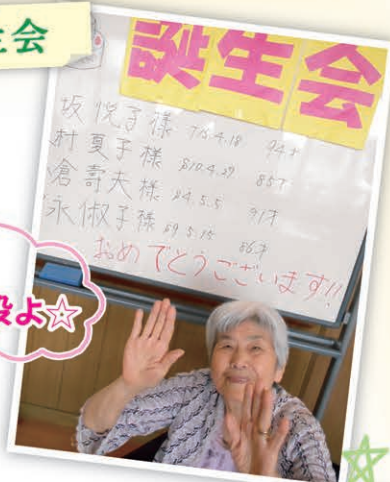 生会
誕生会
坂 悦子様 T15.4.18 94才
村 夏子様 S10.4.29 85才
倉 壽夫様 S4.5.5 91才
永 俶子様 S9.5.15 86才
おめでとうございます!!
よ☆